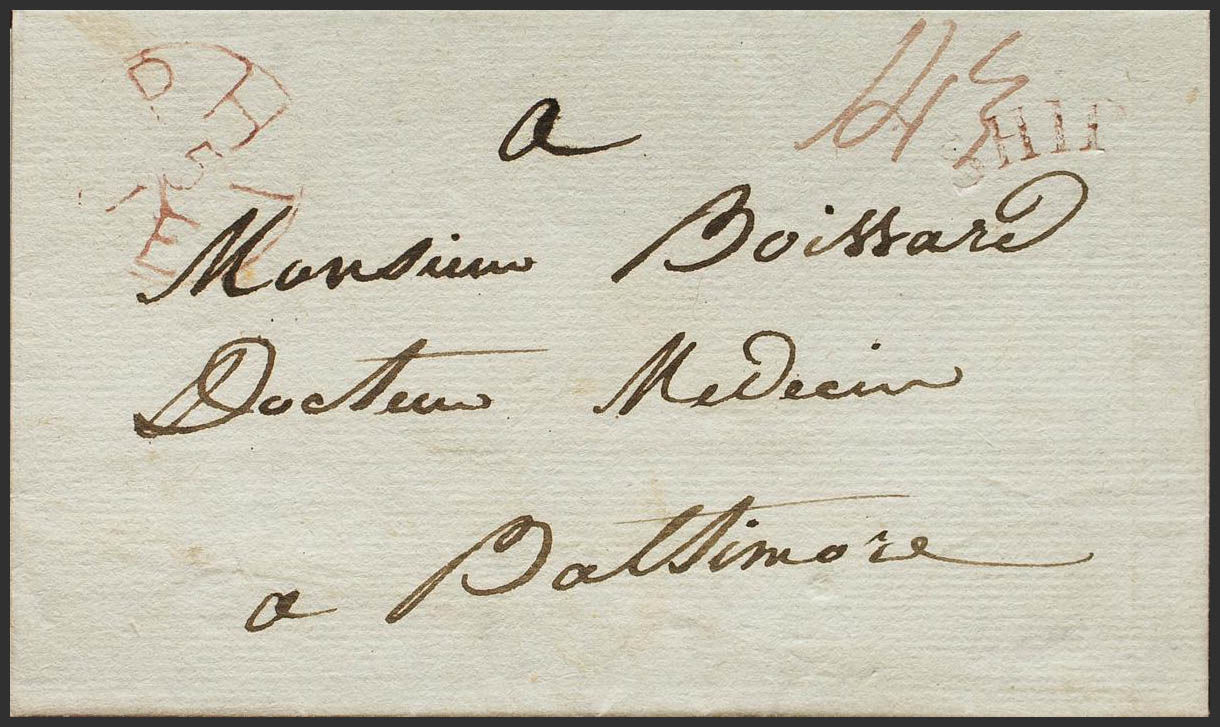 SHIP
a
Monsieur Boissard
Docteur Medecin
a Baltimore